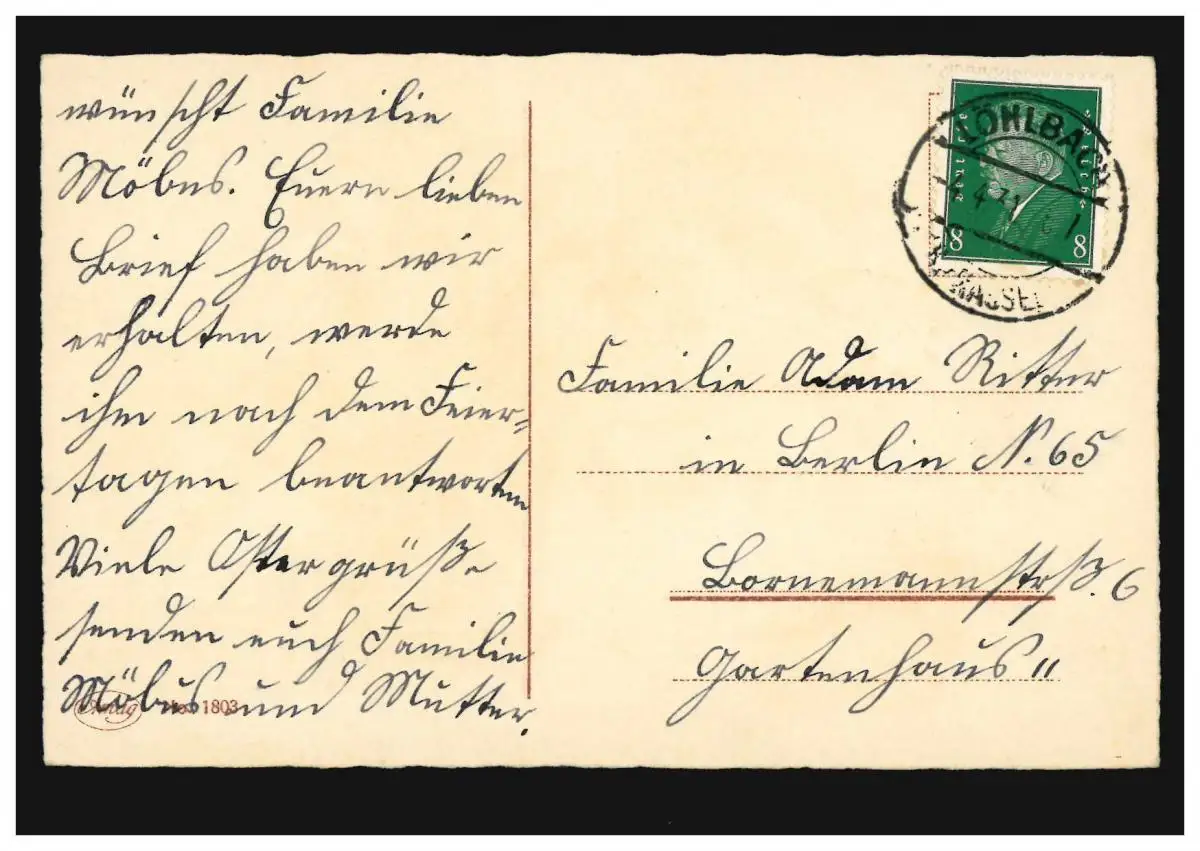 wünscht Familie
Möbus. Euern lieben
Brief haben wir
erhalten, werde
ihm nach dem Feier-
tagen beantworten
Viele Ostergrüße
senden euch Familie
Möbus und Mutter.
No. 1803
LÖHLBACH
4.31
KASSEL
Deutsches Reich
8 8
Familie Adam Ritter
in Berlin N. 65
Bornemannstrß. 6
Gartenhaus II